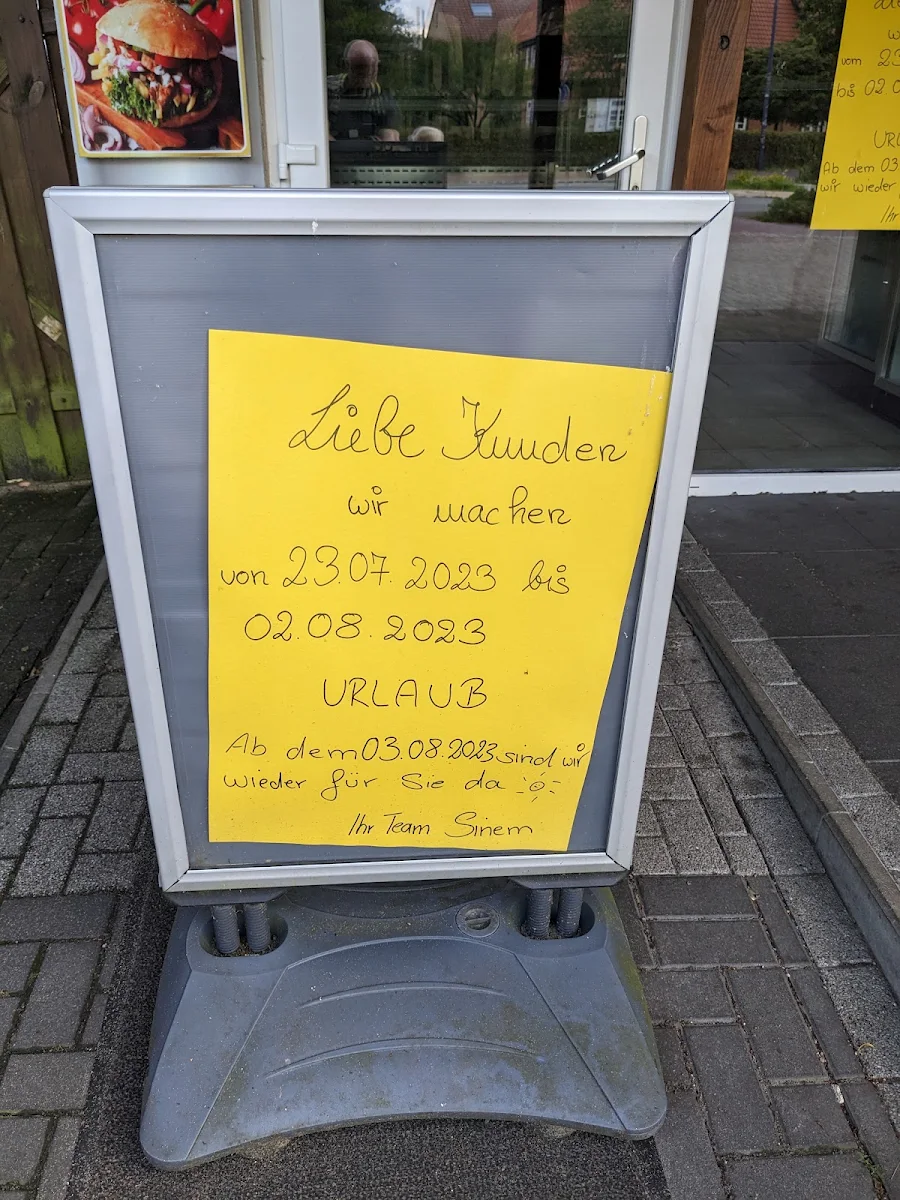 Liebe Kunden
wir machen
von 23.07.2023 bis
02.08.2023
URLAUB
Ab dem 03.08.2023 sind wir
wieder für Sie da
Ihr Team Sinem
w
vom 23
bis 02 0
URL
Ab dem 03
wir wieder
Ihr